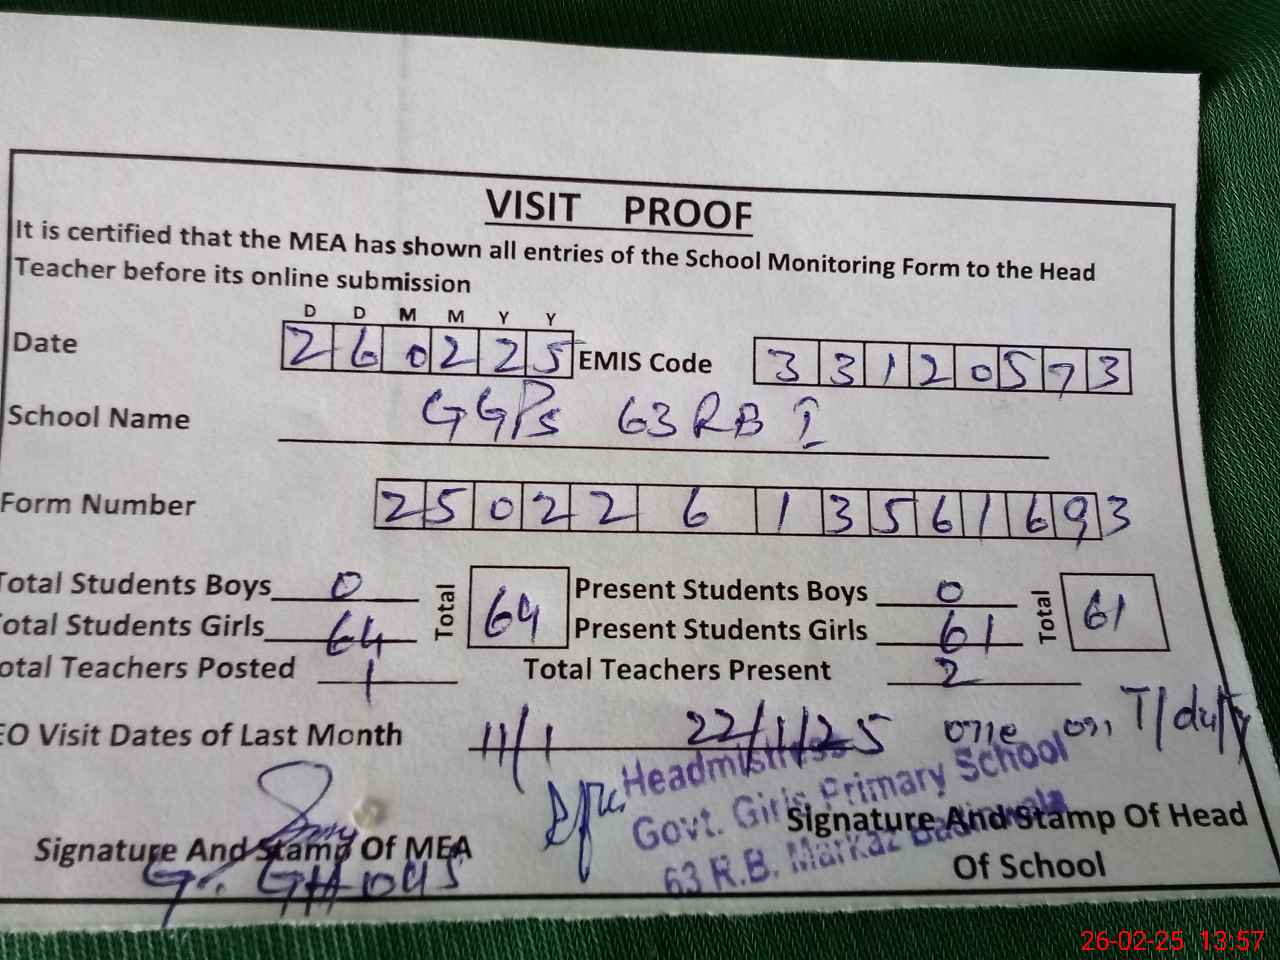 VISIT PROOF
It is certified that the MEA has shown all entries of the School Monitoring Form to the Head
Teacher before its online submission
D D M M Y Y
Date 2 6 0 2 2 5 EMIS Code 3 3 1 2 0 5 7 3
School Name GGPs 63 RB I
Form Number 2 5 0 2 2 6 1 3 5 6 1 6 9 3
Total Students Boys 0 Total 64 Present Students Boys 0 Total 61
Total Students Girls 64 Present Students Girls 61
otal Teachers Posted 1 Total Teachers Present 2
EO Visit Dates of Last Month 11/1 22/1/25 one on T/duty
Headmistress
Govt. Girls Primary School
63 R.B. Markaz
Signature And Stamp Of MEA
Signature And Stamp Of Head
Of School
26-02-25 13:57